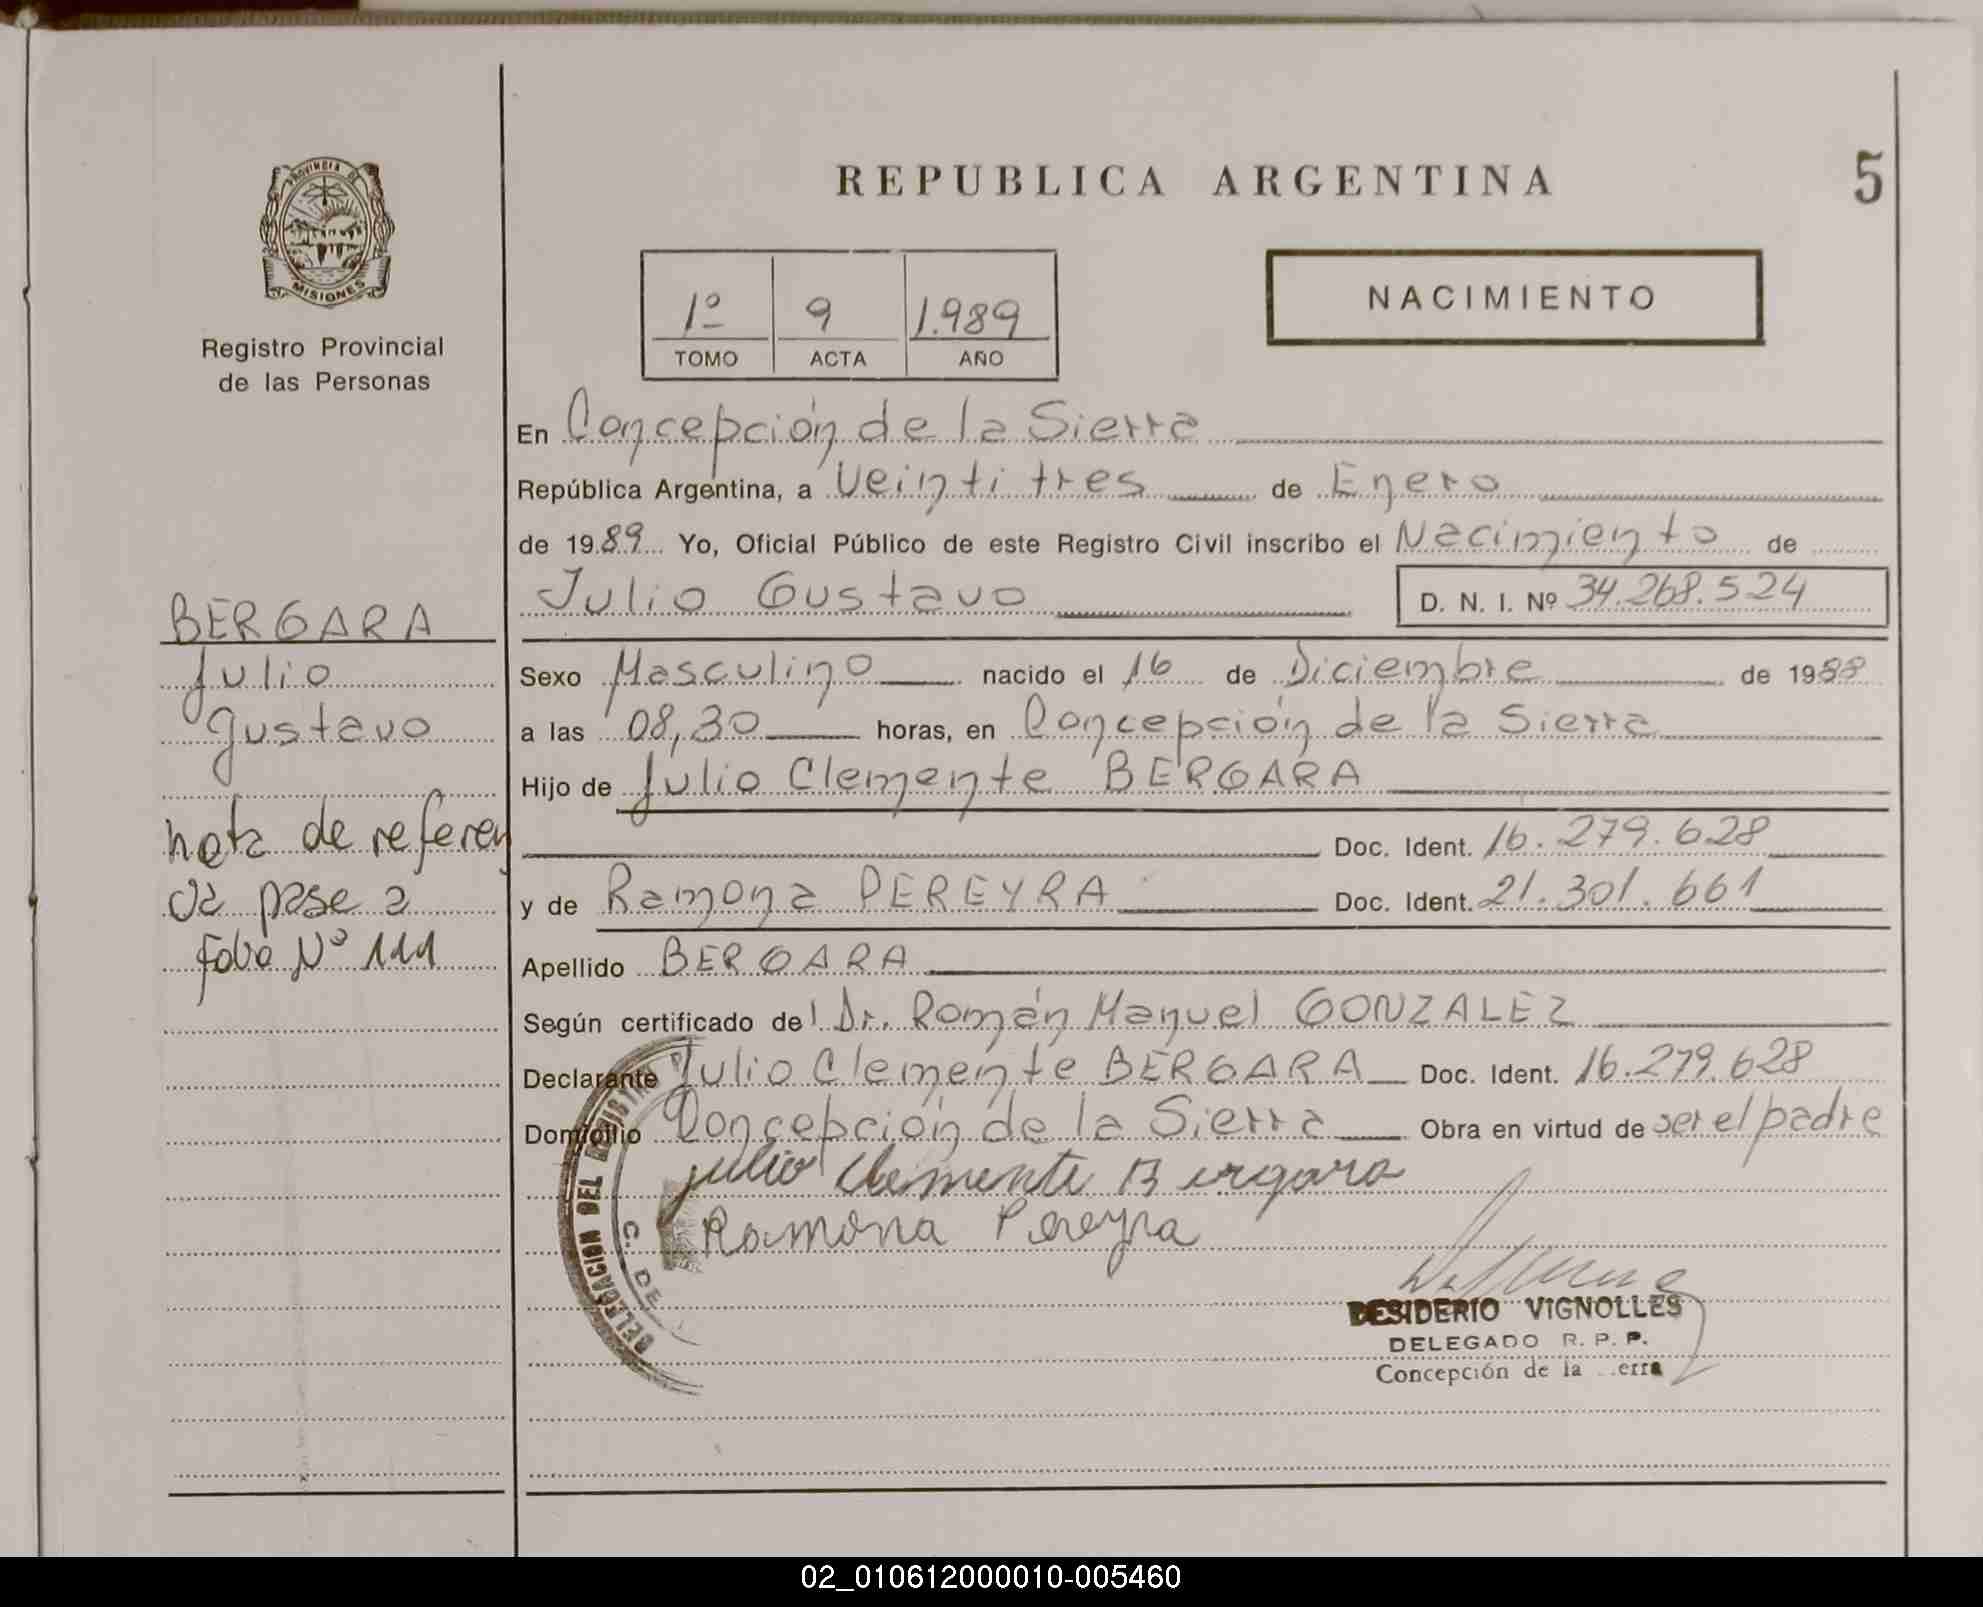 REPUBLICA ARGENTINA
5
PROVINCIA DE
MISIONES
Registro Provincial
de las Personas
1º 9 1.989
TOMO ACTA AÑO
NACIMIENTO
En Concepción de la Sierra
República Argentina, a Veinti tres de Enero
de 1989 Yo, Oficial Público de este Registro Civil inscribo el Nacimiento de
Julio Gustavo D. N. I. Nº 34.268.524
Sexo Masculino nacido el 16 de Diciembre de 1988
a las 08,30 horas, en Concepción de la Sierra
Hijo de Julio Clemente BERGARA
Doc. Ident. 16.279.628
y de Ramona PEREYRA Doc. Ident. 21.301.661
Apellido BERGARA
Según certificado del Dr. Román Manuel GONZALEZ
Declarante Julio Clemente BERGARA Doc. Ident. 16.279.628
Domicilio Concepción de la Sierra Obra en virtud de ser el padre
julio Clemente Bergara
Ramona Pereyra
DELEGACION DEL REGISTRO P
C. DE
DESIDERIO VIGNOLLES
DELEGADO R. P. P.
Concepción de la erra
BERGARA
Julio
Gustavo
nota de referen
cia pase a
folio Nº 111
02_010612000010-005460